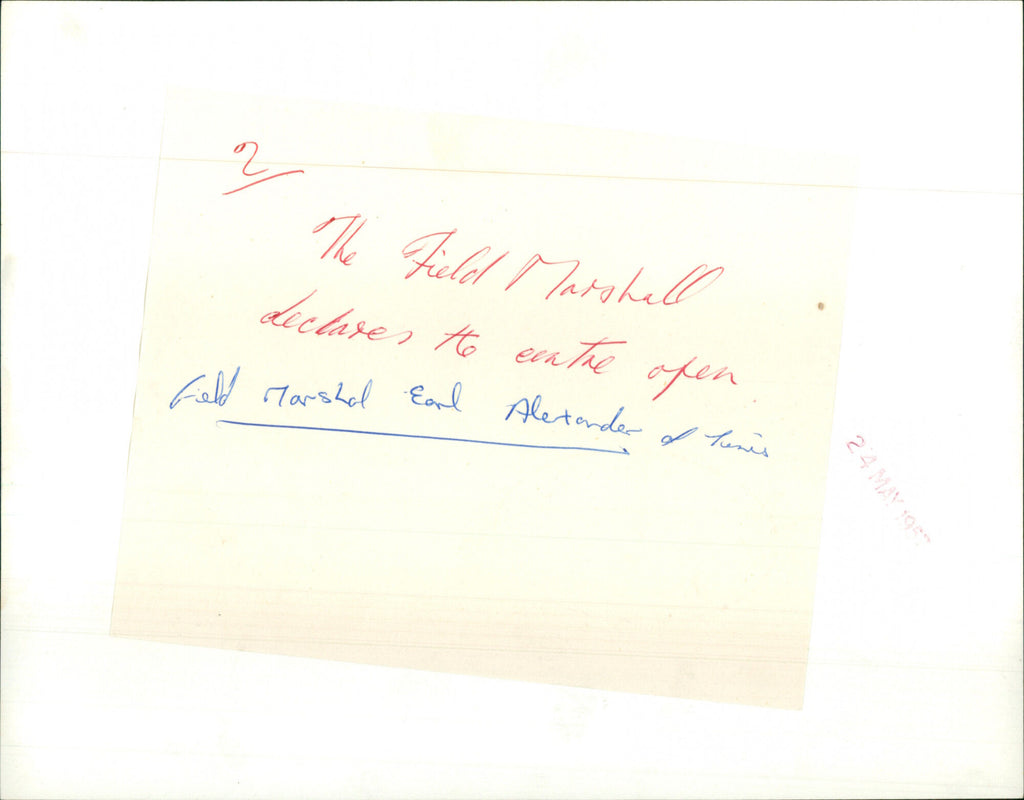 2/
The Field Marshall
declares the centre open
Field Marshal Earl Alexander of Tunis
24 MAY 196